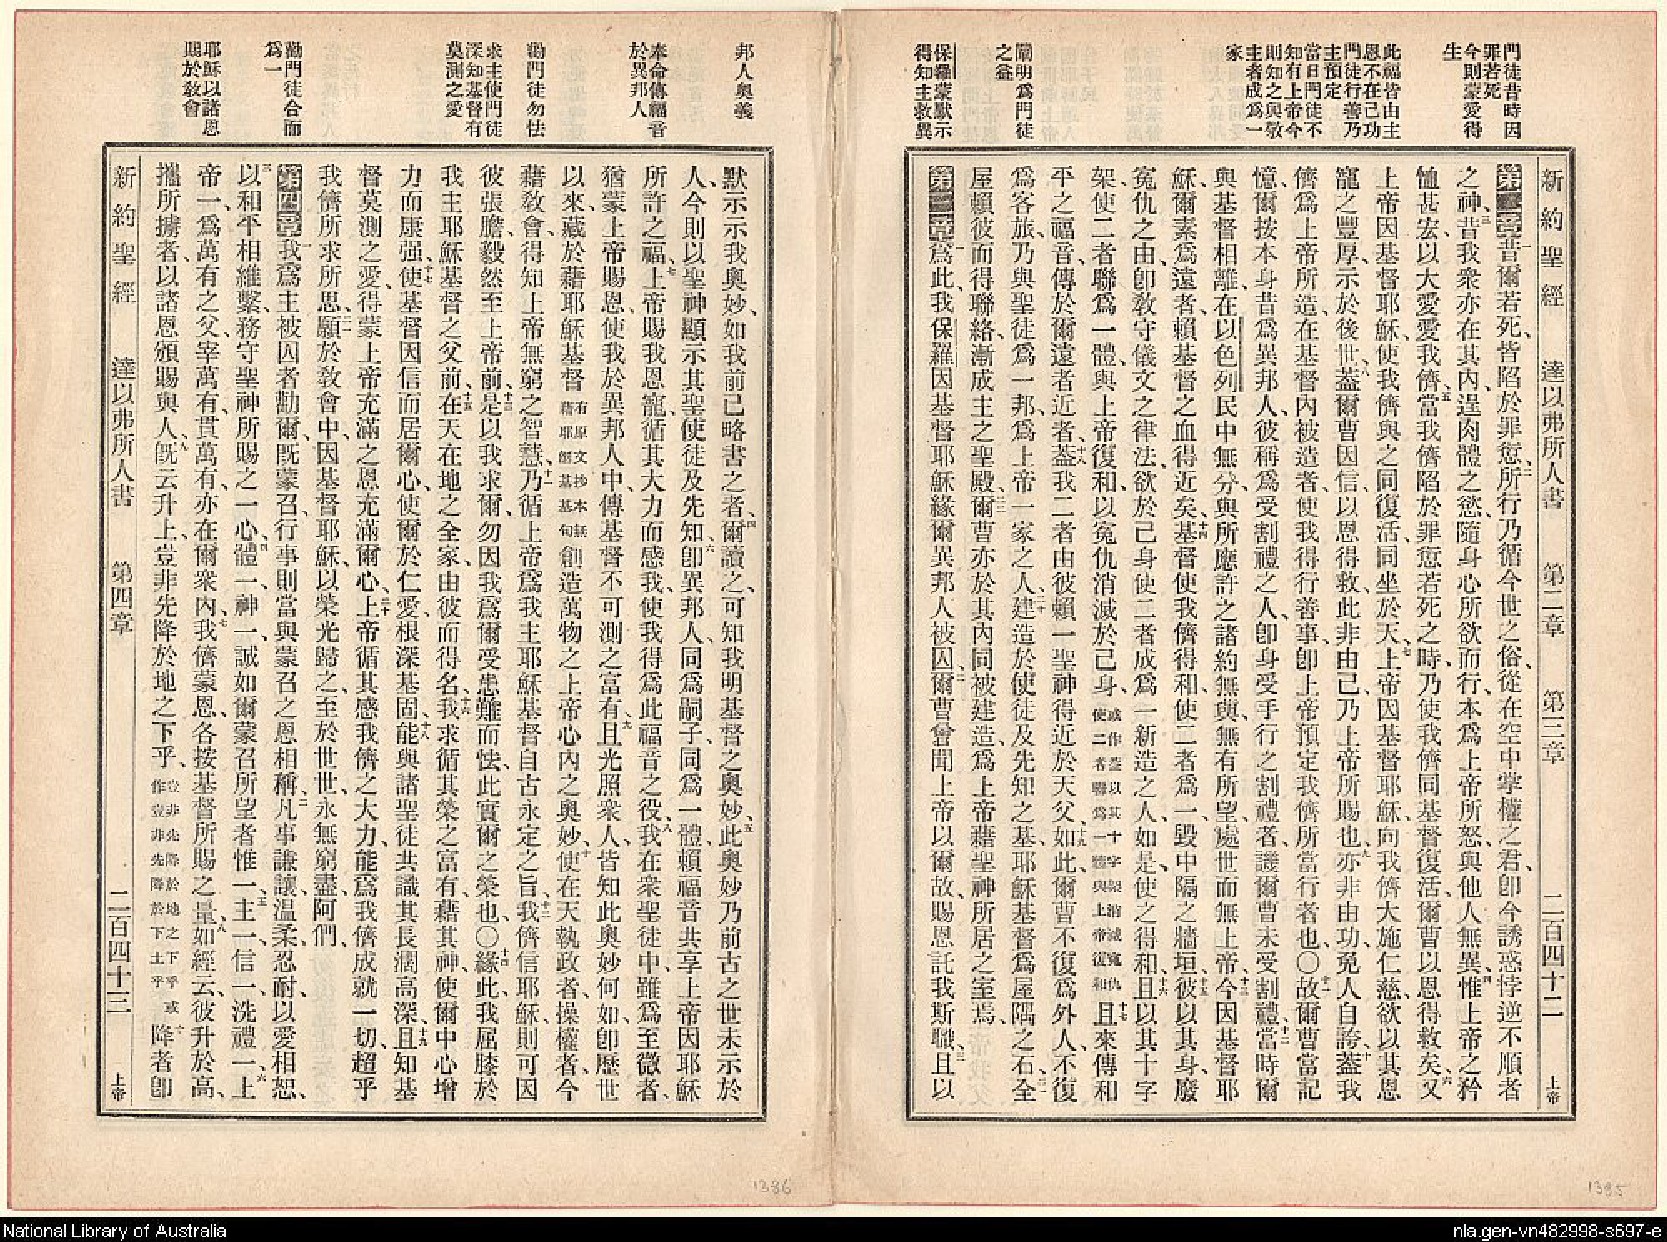 新約聖經 達以弗所人書 第二章 第三章 二百四十二 上帝
門徒昔時因
罪若死
今則蒙愛得
生
此福皆由主
恩不在己功
門徒行善乃
主預定
當日門徒不
知有上帝今
則知之與敎
主者成爲一
家
闡明爲門徒
之益
保羅蒙默示
得知主救異
第二章昔爾若死、皆陷於罪愆、二所行乃循今世之俗、從在空中掌權之君、卽今誘惑悖逆不順者
之神、三昔我衆亦在其內、逞肉體之慾、隨身心所欲而行、本爲上帝所怒、與他人無異、四惟上帝之矜
恤甚宏、以大愛愛我儕、五當我儕陷於罪愆若死之時、乃使我儕同基督復活、爾曹以恩得救矣、六又
上帝因基督耶穌、使我儕與之同復活、同坐於天、七上帝因基督耶穌、向我儕大施仁慈、欲以其恩
寵之豐厚、示於後世、八蓋爾曹因信、以恩得救、此非由己、乃上帝所賜也、九亦非由功、免人自誇、十蓋我
儕爲上帝所造、在基督內被造者、使我得行善事、卽上帝預定我儕所當行者也、〇十一故爾曹當記
憶、爾按本身、昔爲異邦人、彼稱爲受割禮之人、卽身受手行之割禮者、譏爾曹未受割禮、十二當時爾
與基督相離、在以色列民中無分、與所應許之諸約無與、無有所望、處世而無上帝、十三今因基督耶
穌、爾素爲遠者、賴基督之血得近矣、十四基督使我儕得和、使二者爲一、毀中隔之牆垣、十五彼以其身、廢
寃仇之由、卽敎守儀文之律法、欲於己身使二者成爲一新造之人、如是使之得和、十六且以其十字
架、使二者聯爲一體、與上帝復和、以寃仇消滅於己身、或作蓋以其十字架消滅寃仇使二者聯爲一體與上帝復和十七且來傳和
平之福音、傳於爾遠者近者、十八蓋我二者由彼賴一聖神得近於天父、十九如此、爾曹不復爲外人、不復
爲客旅、乃與聖徒爲一邦、爲上帝一家之人、二十建造於使徒及先知之基、耶穌基督爲屋隅之石、二一全
屋賴彼而得聯絡、漸成主之聖殿、二二爾曹亦於其內同被建造、爲上帝藉聖神所居之室焉、
第三章一爲此、我保羅因基督耶穌、緣爾異邦人被囚、二爾曹曾聞上帝以爾故、賜恩託我斯職、三且以
邦人奧義
奉命傳福音
於異邦人
勸門徒勿怯
求主使門徒
深知基督有
莫測之愛
勸門徒合而
爲一
耶穌以諸恩
賜於敎會
默示示我奧妙、如我前已略書之者、四爾讀之、可知我明基督之奧妙、五此奧妙乃前古之世未示於
人、今則以聖神顯示其聖使徒及先知、六卽異邦人、同爲嗣子、同爲一體、賴福音共享上帝因耶穌
所許之福、七上帝賜我恩寵、循其大力而感我、使我得爲此福音之役、八我在衆聖徒中、雖爲至微者、
猶蒙上帝賜恩、使我於異邦人中、傳基督不可測之富有、九且光照衆人、皆知此奧妙何如、卽歷世
以來、藏於藉耶穌基督有原文抄本無藉耶穌基督句創造萬物之上帝心內之奧妙、十使在天執政者操權者、今
藉敎會、得知上帝無窮之智慧、十一乃循上帝爲我主耶穌基督自古永定之旨、十二我儕信耶穌、則可因
彼張膽毅然至上帝前、十三是以我求爾、勿因我爲爾受患難而怯、此實爾之榮也、〇十四緣此、我屈膝於
我主耶穌基督之父前、十五在天在地之全家、由彼而得名、十六我求循其榮之富有、藉其神、使爾中心增
力而康强、十七使基督因信而居爾心、使爾於仁愛、根深基固、十八能與諸聖徒共識其長濶高深、十九且知基
督莫測之愛、得蒙上帝充滿之恩充滿爾心、二十上帝循其感我儕之大力、能爲我儕成就一切、超乎
我儕所求所思、二一願於敎會中、因基督耶穌、以榮光歸之、至於世世、永無窮盡、阿們、
第四章一我爲主被囚者勸爾、旣蒙召、行事則當與蒙召之恩相稱、二凡事謙讓溫柔忍耐、以愛相恕、
三以和平相維繫、務守聖神所賜之一心、四體一、神一、誠如爾蒙召所望者惟一、五主一、信一、洗禮一、六上
帝一、爲萬有之父、宰萬有、貫萬有、亦在爾衆內、七我儕蒙恩、各按基督所賜之量、八如經云、彼升於高、
攜所擄者、以諸恩頒賜與人、九旣云升上、豈非先降於地之下乎、豈非先降於地之下乎或作豈非先降於下土乎十降者卽
新約聖經 達以弗所人書 第四章 二百四十三 上帝
1386
1395
National Library of Australia
nla.gen-vn482998-s697-e